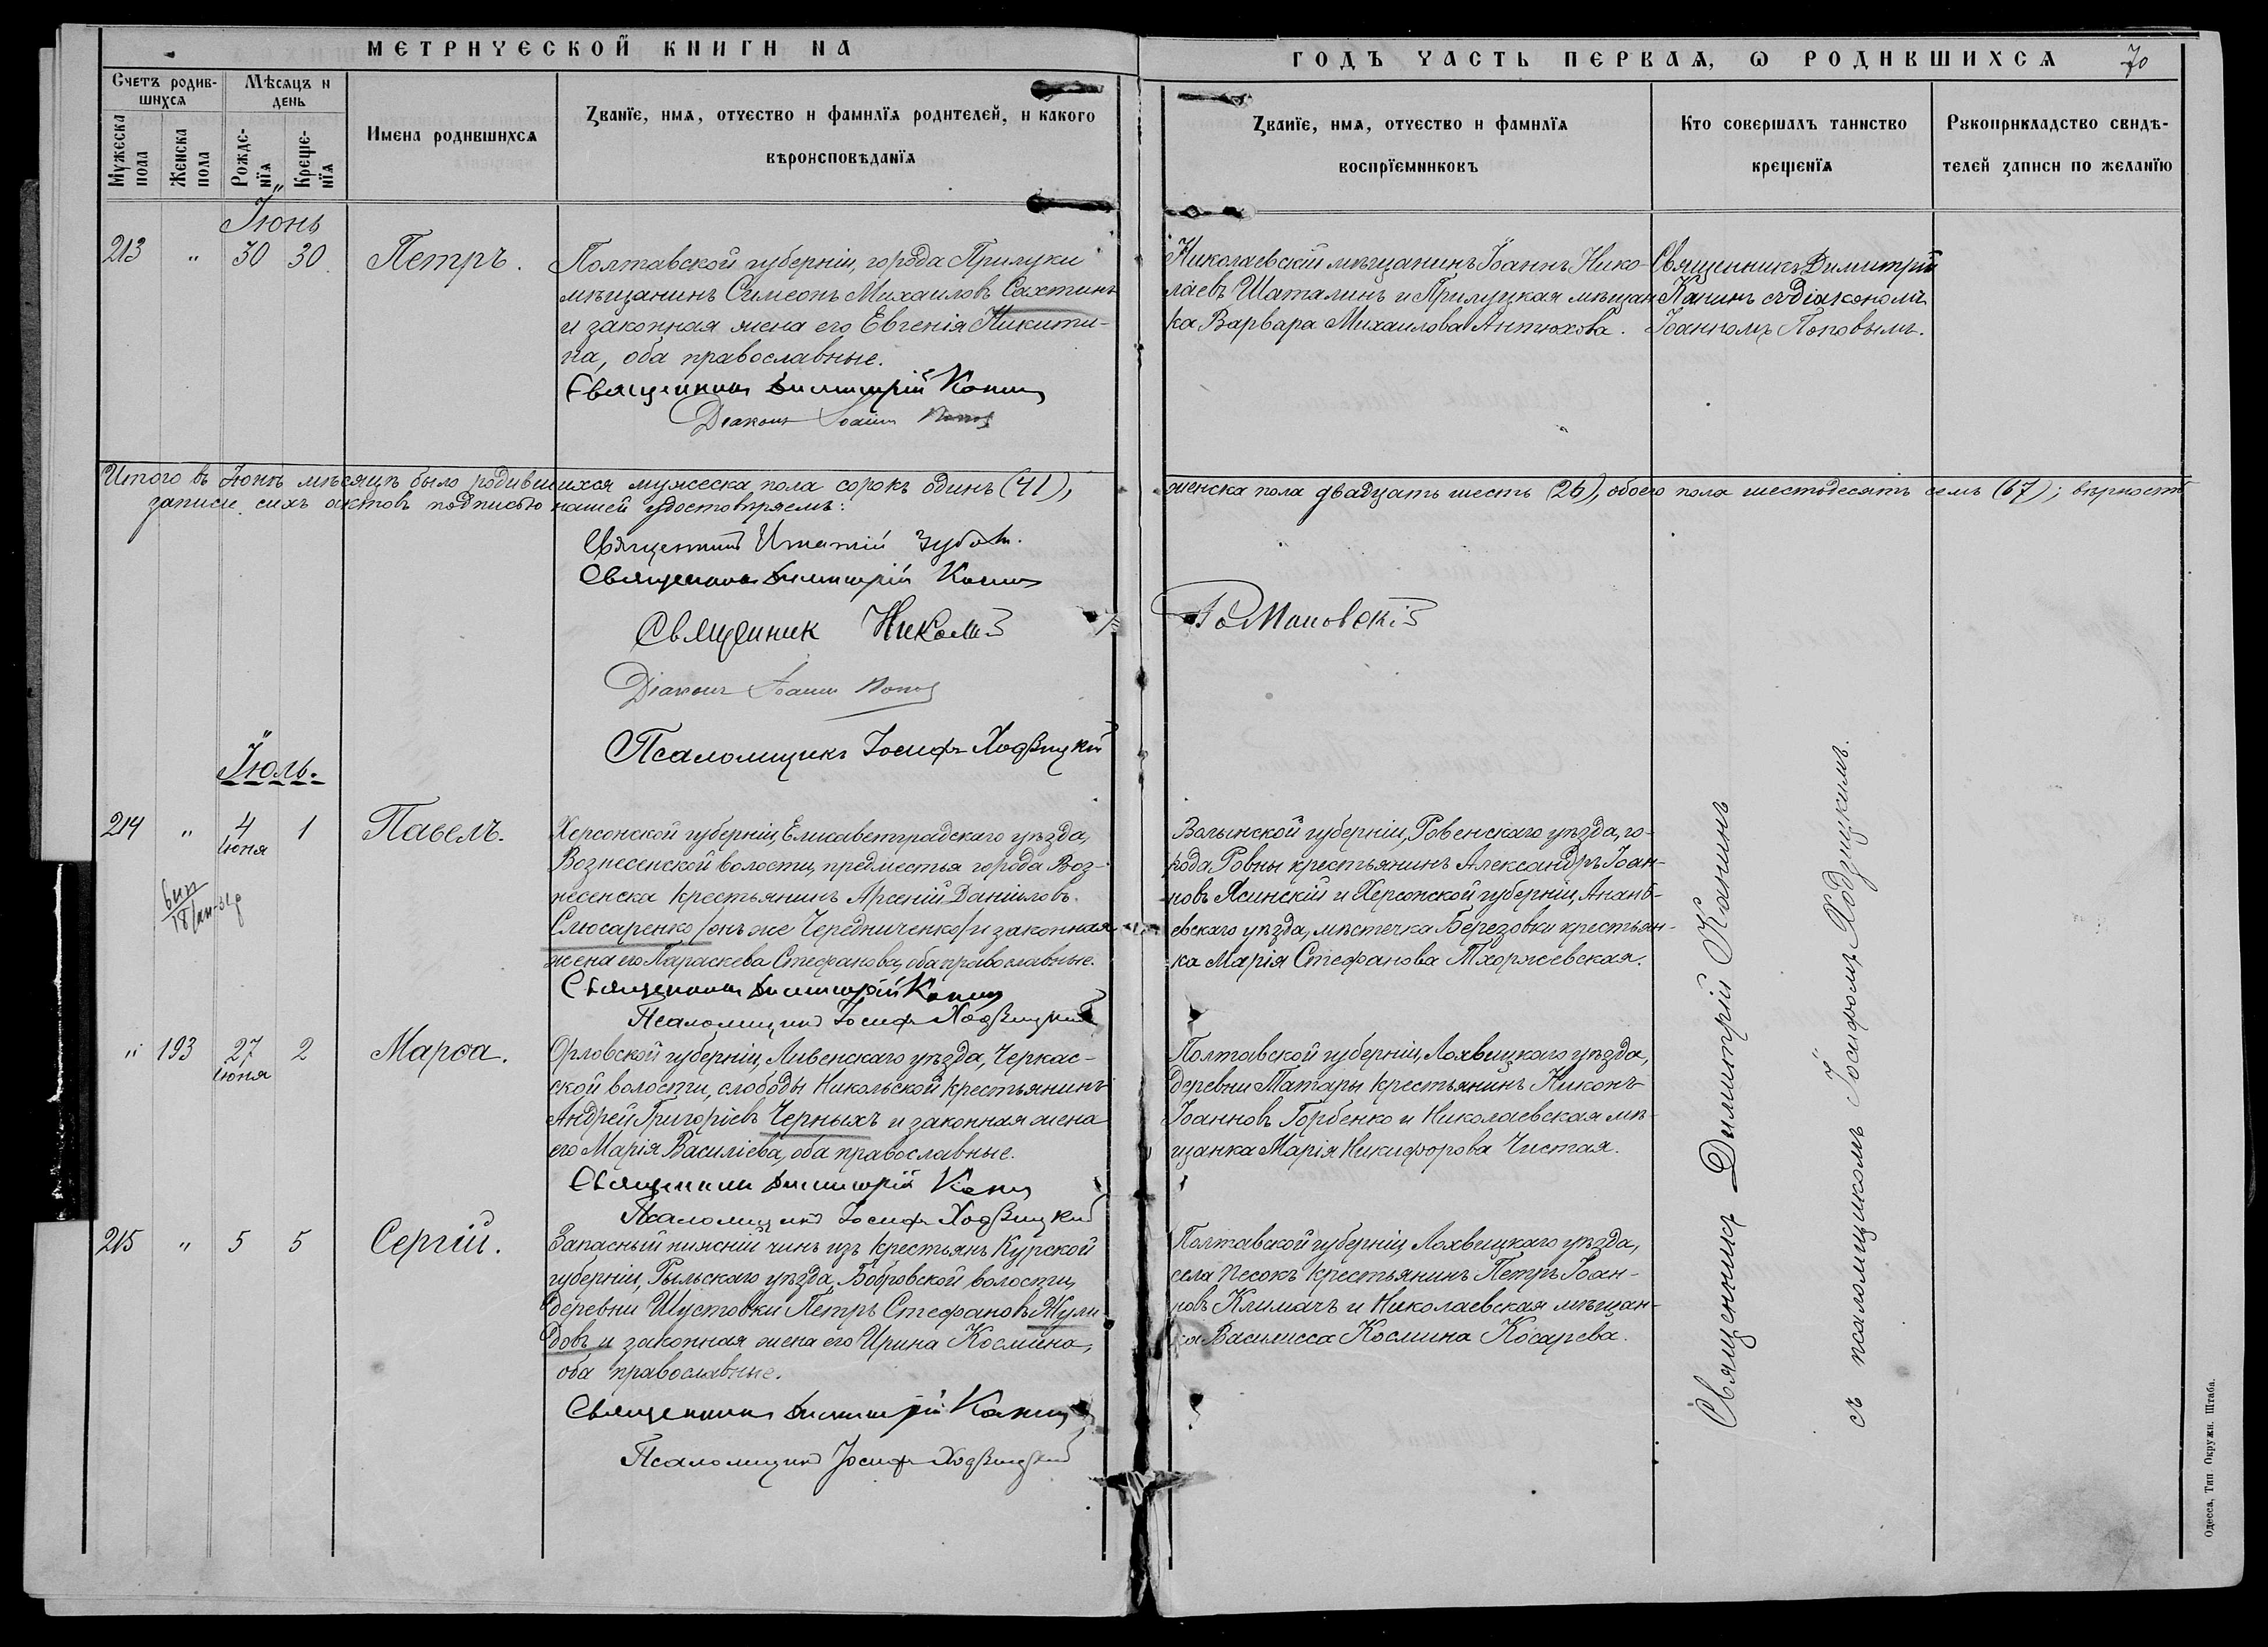 МЕТРИЧЕСКОЙ КНИГИ НА
ГОДЪ ЧАСТЬ ПЕРВАЯ, Ѡ РОДИВШИХСЯ
70
Счетъ родив-
шихся
Мѣсяцъ и
день
Мужеска
пола
Женска
пола
Рожде-
нїя
Креще-
нїя
Имена родившихся
Званїе, имя, отчество и фамилїя родителей, и какого
вѣроисповѣданїя
Званїе, имя, отчество и фамилїя
воспрїемниковъ
Кто совершалъ таинство
крещенїя
Рукоприкладство свидѣ-
телей записи по желанїю
Іюнь
213 " 30 30 Петръ.
Полтавской губерніи, города Прилуки
мѣщанинъ Симеонъ Михаиловъ Сахтинъ
и законная жена его Евгенія Никити-
на, оба православные.
Священникъ Димитрій Канинъ
Діаконъ Іоаннъ Поповъ
Николаевскій мѣщанинъ Іоаннъ Нико-
лаевъ Шаталинъ и Прилуцкая мѣщан
ка Варвара Михаилова Антюхова.
Священникъ Димитрій
Канинъ съ діакономъ
Іоанномъ Поповымъ.
Итого въ Іюнѣ мѣсяцѣ было родившихся мужеска пола сорокъ одинъ (41), женска пола двадцать шесть (26), обоего пола шестьдесятъ семь (67); вѣрность
записи сихъ актовъ подписью нашей удостовѣряемъ:
Священникъ Игнатій
Священникъ Димитрій Канинъ
Священник Николай Романовскій
Діаконъ Іоаннъ Поповъ
Псаломщикъ Іосифъ Ходзицкій
Іюль.
214 " 4 1 Павелъ.
Іюня
Херсонской губерніи, Елисаветградскаго уѣзда,
Вознесенской волости, предместья города Воз-
несенска крестьянинъ Арсеній Даніиловъ
Слюсаренко /онъ же Чередниченко/ и законная
жена его Параскева Стефанова, оба православные.
Священникъ Димитрій Канинъ
Псаломщикъ Іосифъ Ходзицкій
Волынской губерніи, Ровенскаго уѣзда, го-
рода Ровны крестьянинъ Александръ Іоан-
новъ Ясинскій и Херсонской губерніи, Анань-
евскаго уѣзда, мѣстечка Березовки крестьян-
ка Марія Стефанова Тхоржевская.
" 193 27 2 Марѳа.
Іюня
Орловской губерніи, Ливенскаго уѣзда, Черкас-
ской волости, слободы Никольской крестьянинъ
Андрей Григоріевъ Черныхъ и законная жена
его Марія Василіева, оба православные.
Священникъ Димитрій Канинъ
Псаломщикъ Іосифъ Ходзицкій
Полтавской губерніи, Лохвицкаго уѣзда,
деревни Татары крестьянинъ Никонъ
Іоанновъ Горбенко и Николаевская мѣ-
щанка Марія Никифорова Чистая.
215 " 5 5 Сергій.
Запасный нижній чинъ изъ крестьянъ Курской
губерніи, Рыльскаго уѣзда, Бобровской волости,
деревни Шустовки Петръ Стефановъ Жули-
довъ и законная жена его Ирина Космина,
оба православные.
Священникъ Димитрій Канинъ
Псаломщикъ Іосифъ Ходзицкій
Полтавской губерніи, Лохвицкаго уѣзда,
села Песокъ крестьянинъ Петръ Іоан-
новъ Климачъ и Николаевская мѣщан-
ка Василисса Космина Косарева.
Священникъ Димитрій Канинъ
съ псаломщикомъ Іосифомъ Ходзицкимъ.
Одесса, Тип Окружн. Штаба.